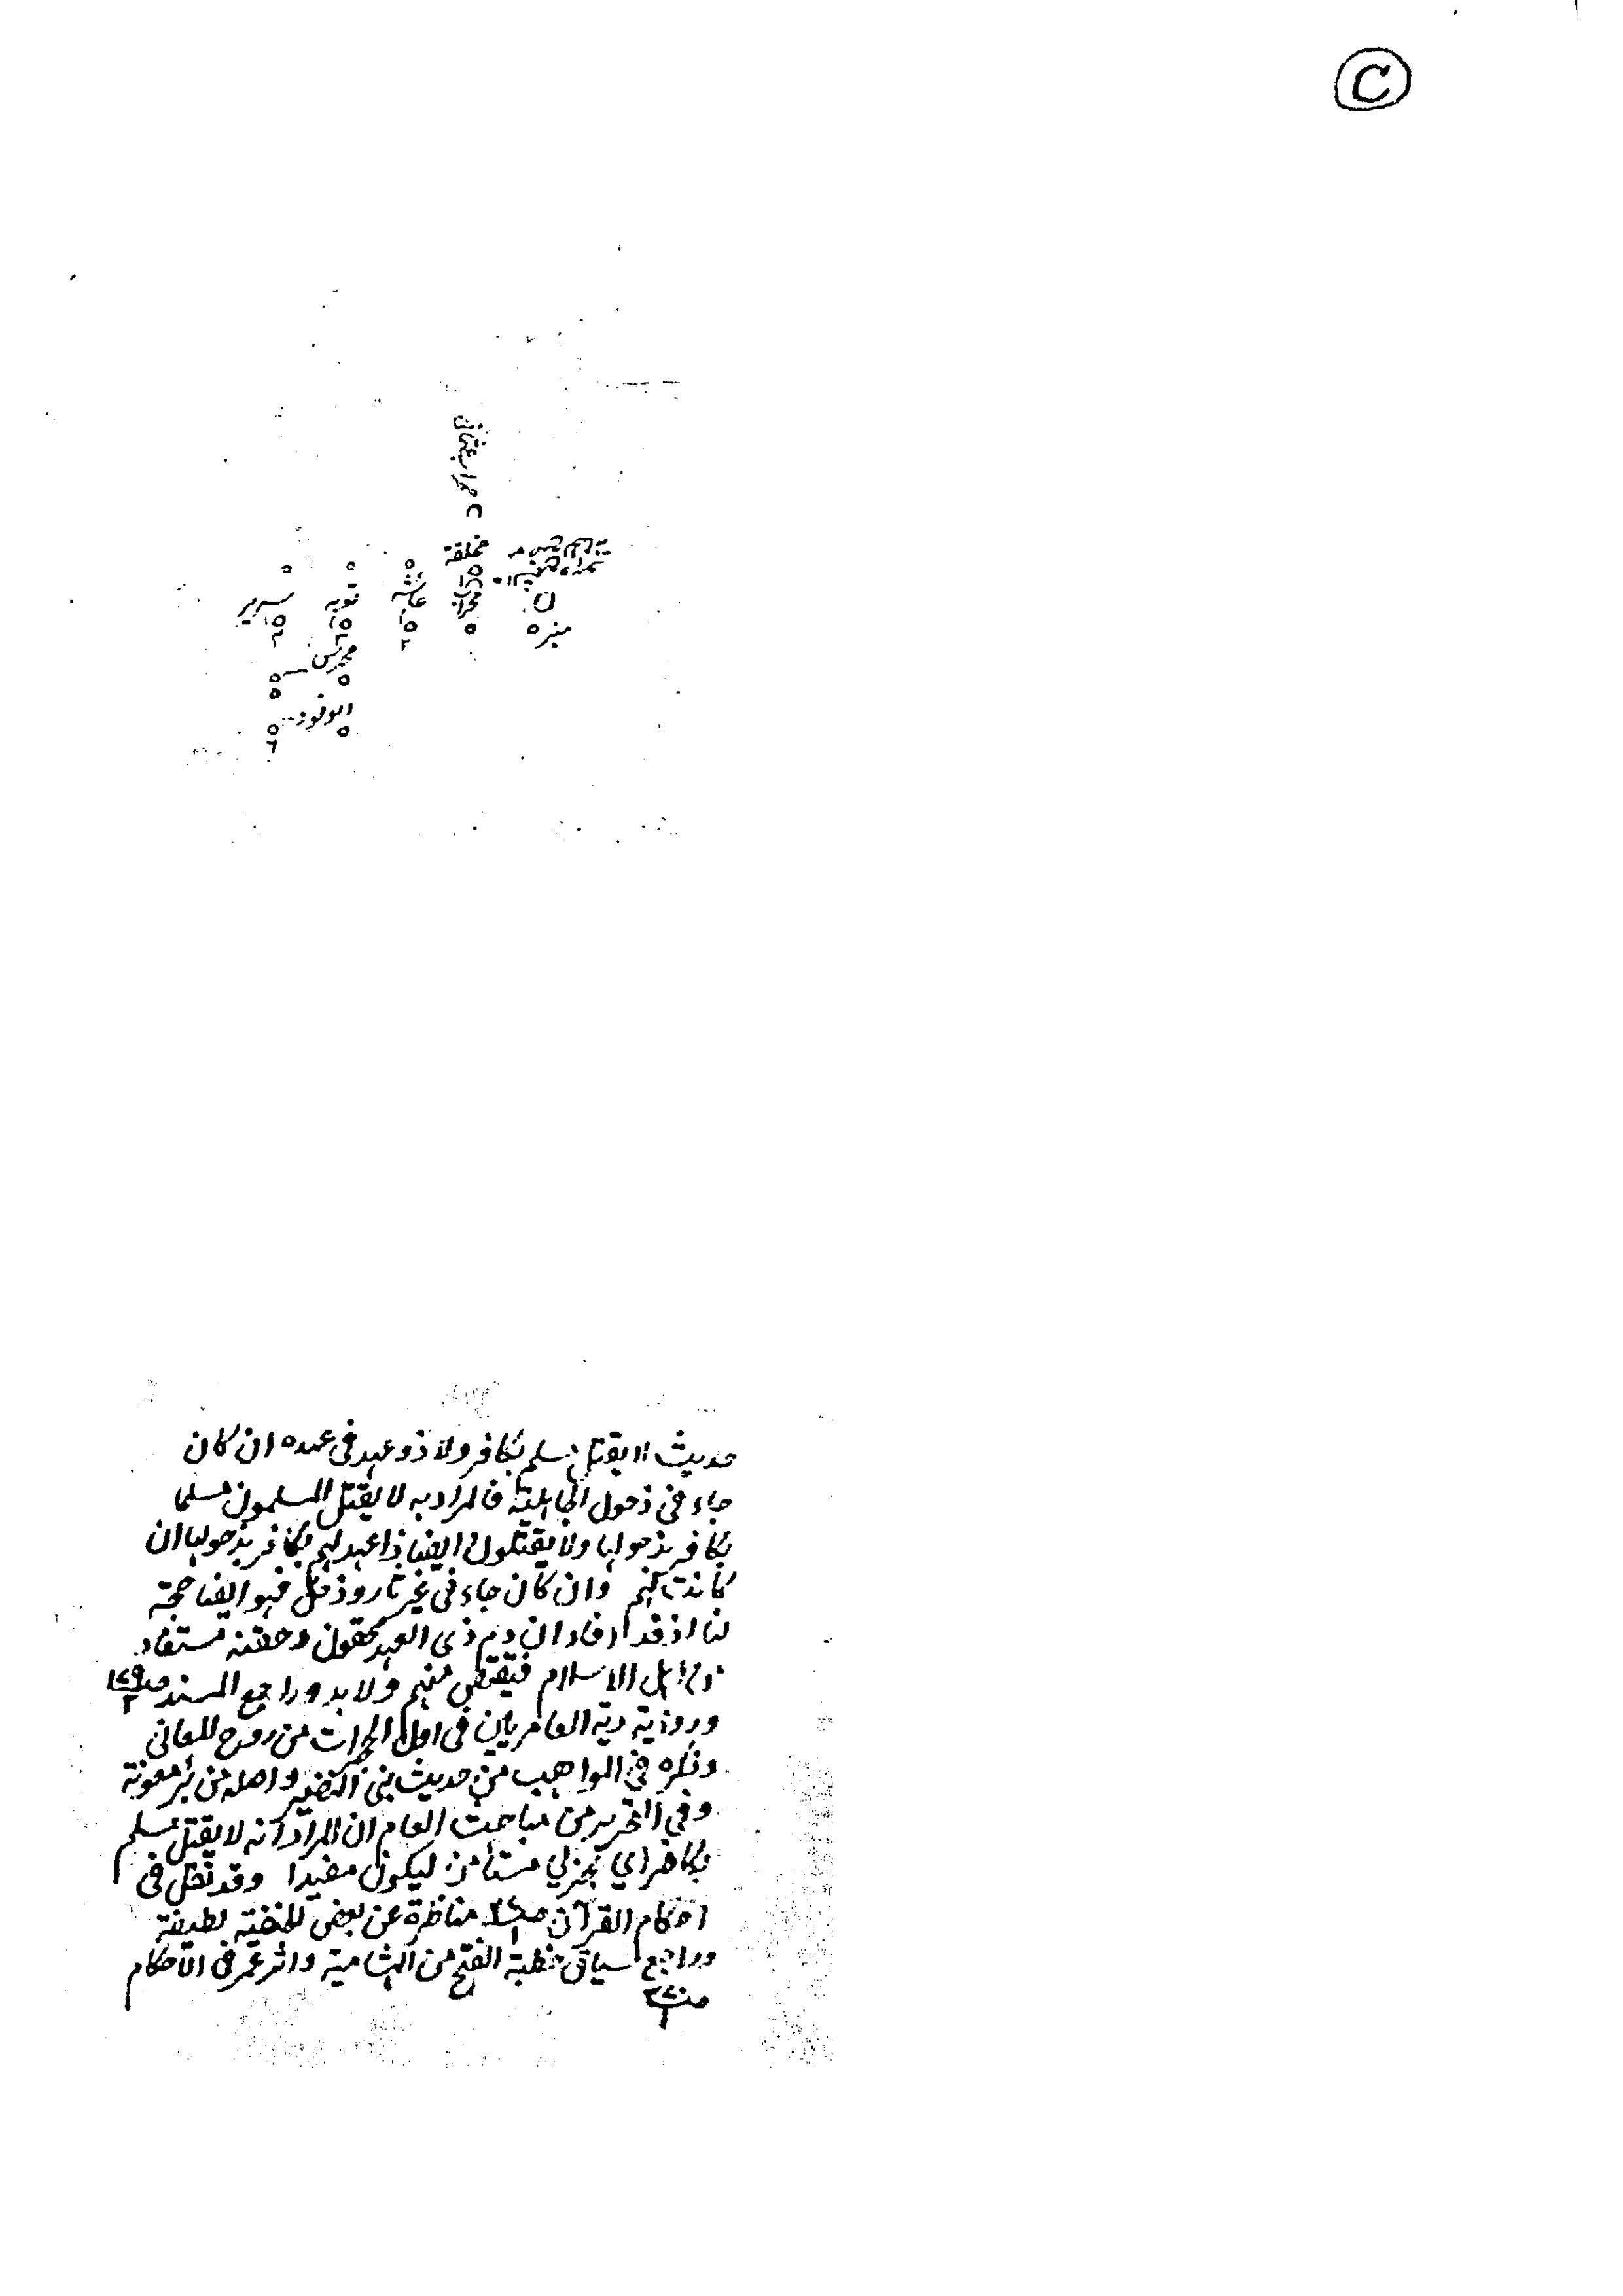 C
مخلقة
سرير توبه عائشه محراب
منبر
محرس
الوفود
حديث لا يقتل مسلم بكافر ولا ذو عهد فى عهده ان كان
جاء فى ذحول الجاهلية فالمراد به لا يقتل المسلمون مسلما
بكافر بذحولها ولا يقتلون ايضا ذا عهد لهم بكافر بذحولها ان
كانت لهم وان كان جاء فى غير ثار وذحل فهو ايضا حجة
لنا اذ قد افاد ان دم ذى العهد محقون وحقنه مستفاد
من اهل الاسلام فيقتص منهم ولا بد وراجع المسند
ورواية دية العامريين فى اول الحجرات من روح المعانى
وذكره فى المواهب من حديث بنى النضير واصله من بئر معونة
وفى التحرير من مباحث العام ان المراد انه لا يقتل مسلم
بكافر اي بحربي مستأمن ليكون مفيدا وقد نقل فى
احكام القرآن مناظرة عن بعض الحنفية لطيفة
وراجع سياق خطبة الفتح من الشامية واثر عمر فى الاحكام